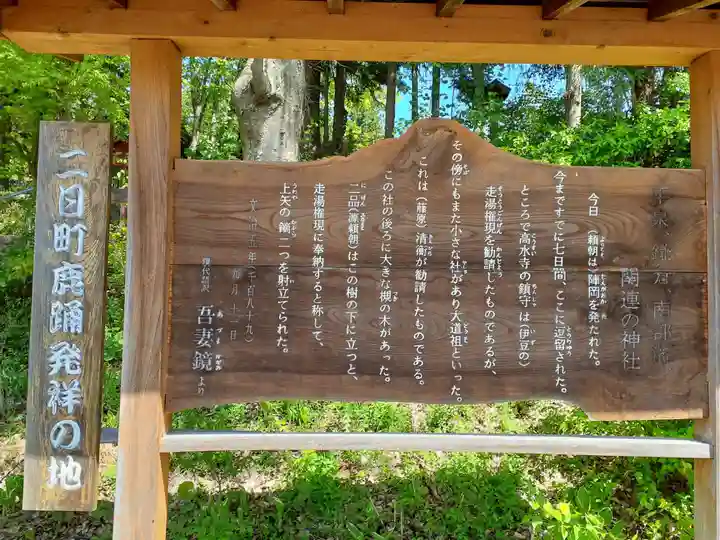 平泉 鎌倉 南部氏
関連の神社
今日(頼朝は)陣岡を発たれた。
今まですでに七日間、ここに逗留された。
ところで高水寺の鎮守は(伊豆の)
走湯権現を勧請したものであるが、
その傍にもまた小さな社があり大道祖といった。
これは(藤原)清衡が勧請したものである。
この社の後ろに大きな槻の木があった。
二品(源頼朝)はこの樹の下に立つと、
走湯権現に奉納すると称して、
上矢の鏑二つを射立てられた。
文治五年(千百八十九)
九月十一日
現代語訳 吾妻鏡より
二日町鹿踊発祥の地